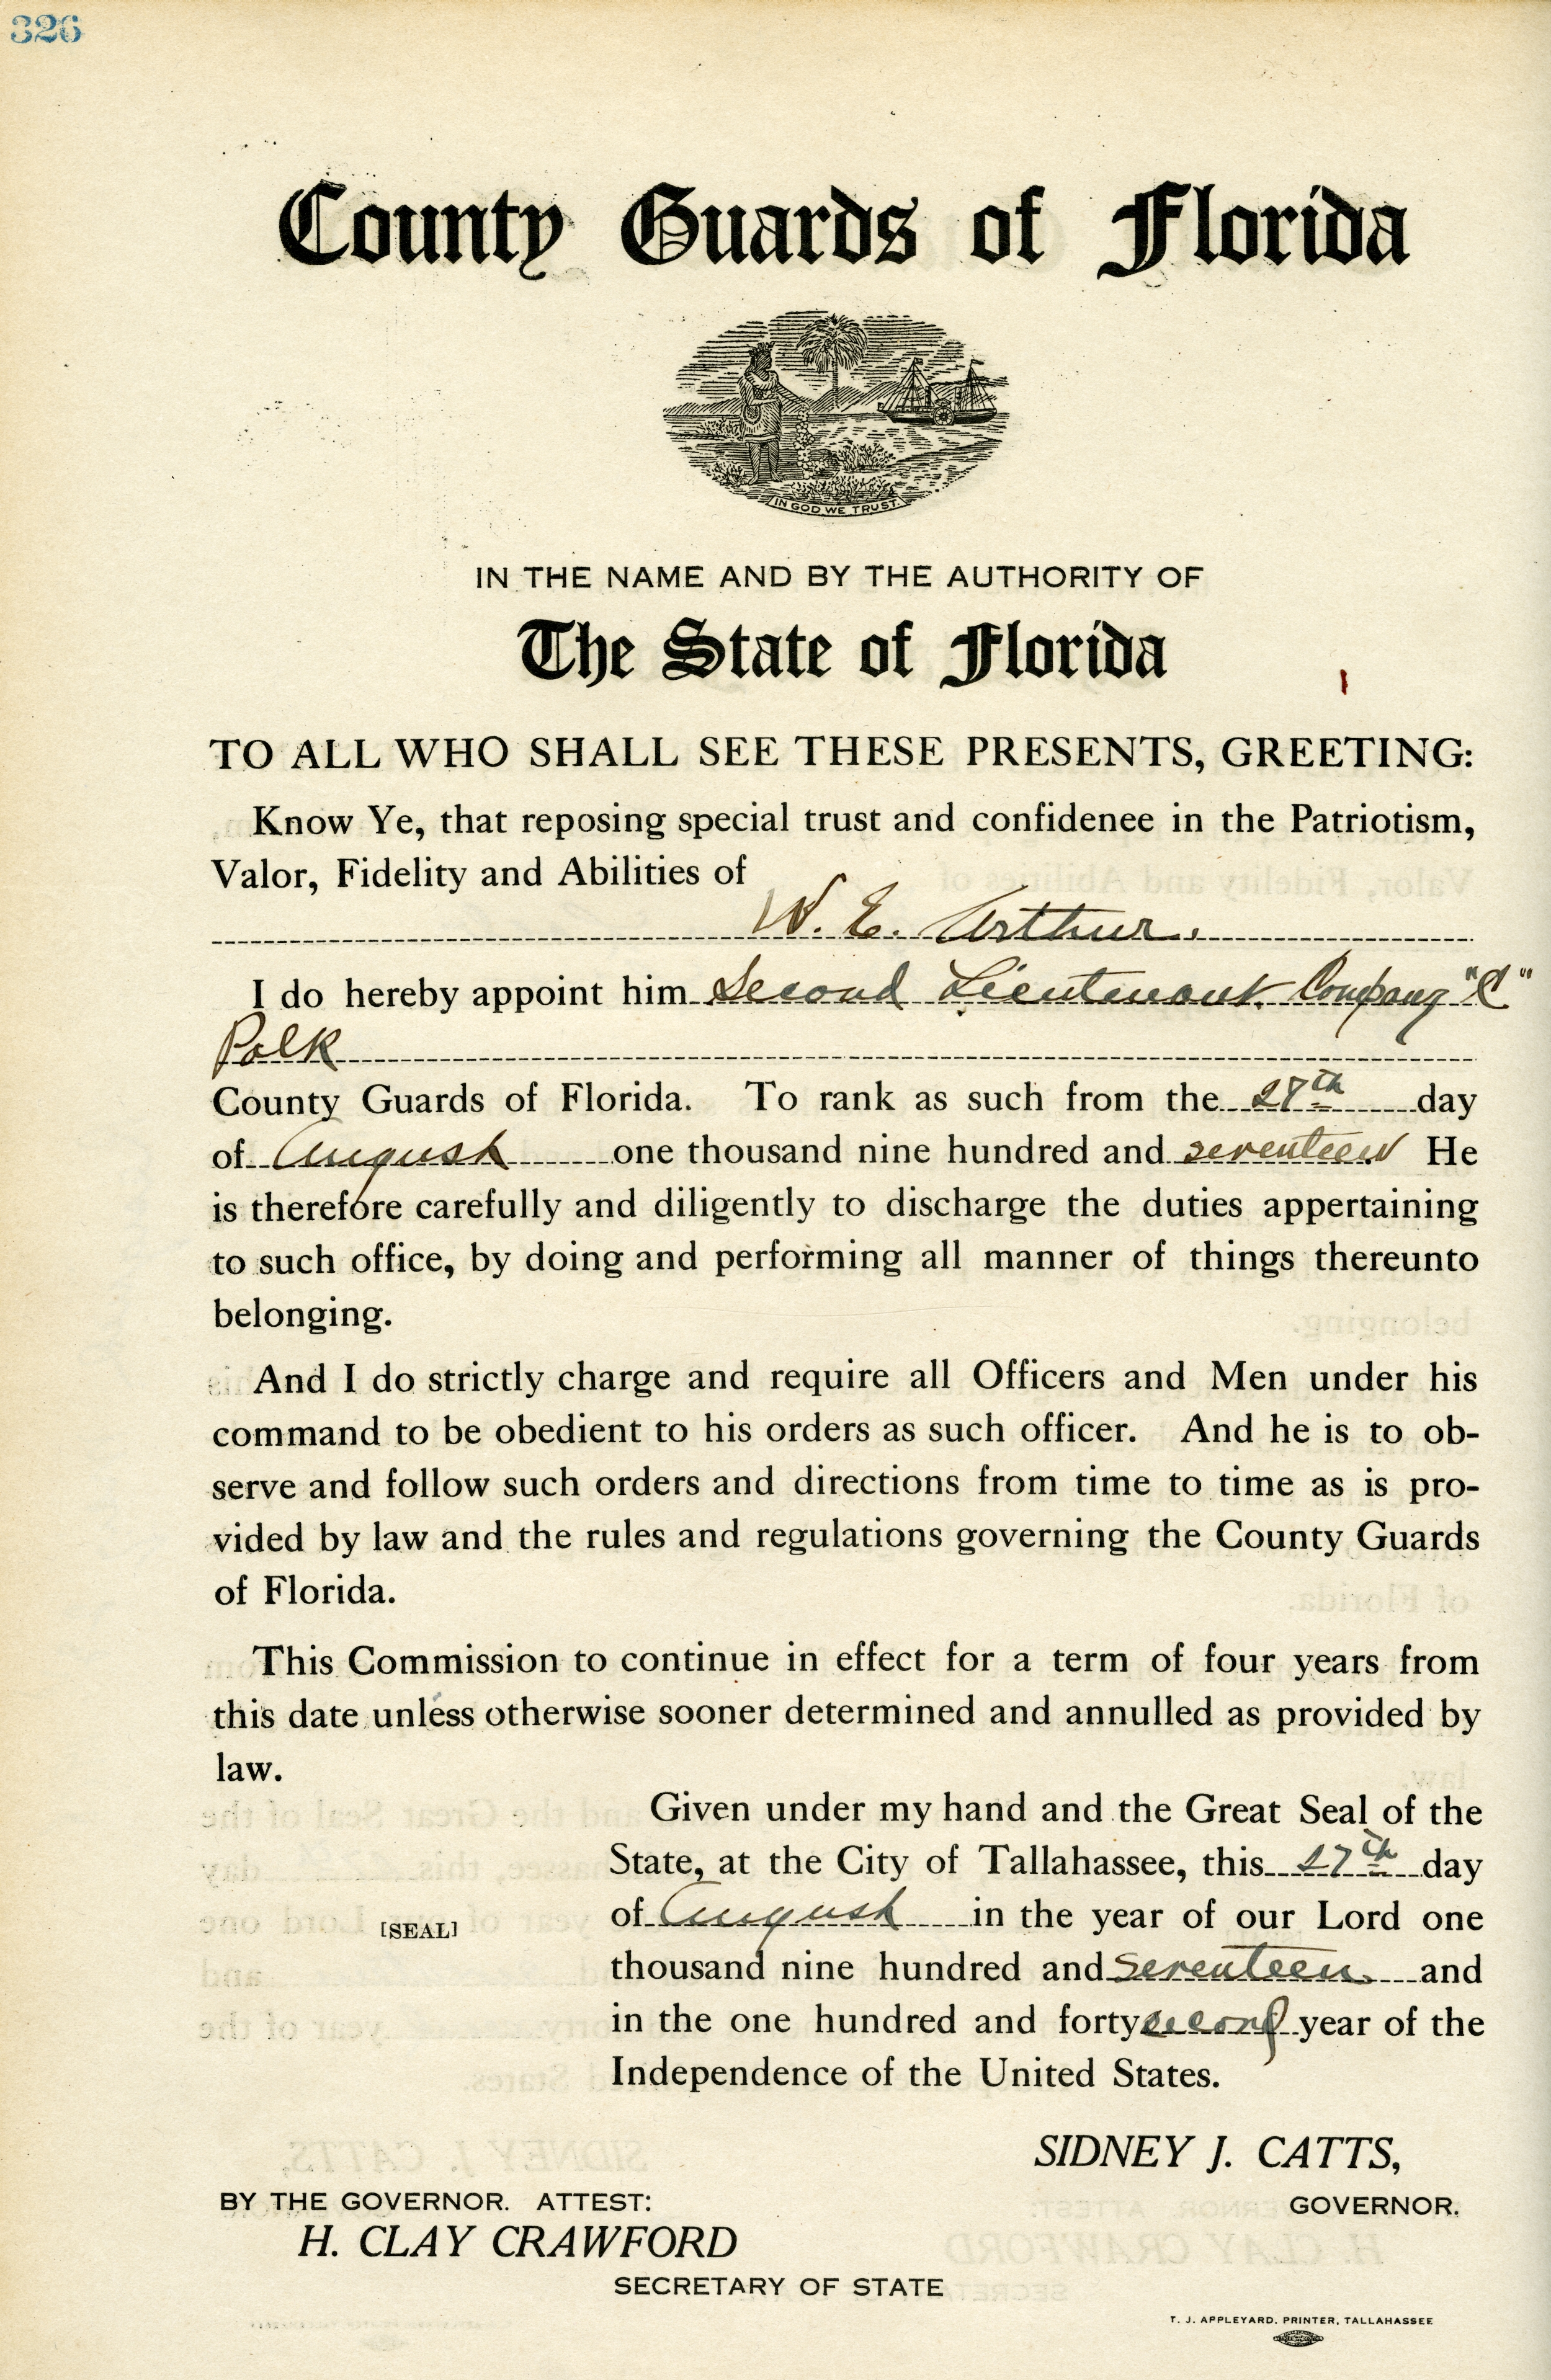 326
County Guards of Florida
IN GOD WE TRUST.
IN THE NAME AND BY THE AUTHORITY OF
The State of Florida
TO ALL WHO SHALL SEE THESE PRESENTS, GREETING:
Know Ye, that reposing special trust and confidenee in the Patriotism,
Valor, Fidelity and Abilities of
W. E. Arthur.
I do hereby appoint him Second Lieutenant. Company "C"
Polk
County Guards of Florida. To rank as such from the 27th day
of August one thousand nine hundred and seventeen He
is therefore carefully and diligently to discharge the duties appertaining
to such office, by doing and performing all manner of things thereunto
belonging.
And I do strictly charge and require all Officers and Men under his
command to be obedient to his orders as such officer. And he is to ob-
serve and follow such orders and directions from time to time as is pro-
vided by law and the rules and regulations governing the County Guards
of Florida.
This Commission to continue in effect for a term of four years from
this date unless otherwise sooner determined and annulled as provided by
law.
Given under my hand and the Great Seal of the
State, at the City of Tallahassee, this 27th day
of August in the year of our Lord one
[SEAL]
thousand nine hundred and Seventeen and
in the one hundred and forty second year of the
Independence of the United States.
SIDNEY J. CATTS,
BY THE GOVERNOR. ATTEST:
GOVERNOR.
H. CLAY CRAWFORD
SECRETARY OF STATE
T. J. APPLEYARD, PRINTER, TALLAHASSEE